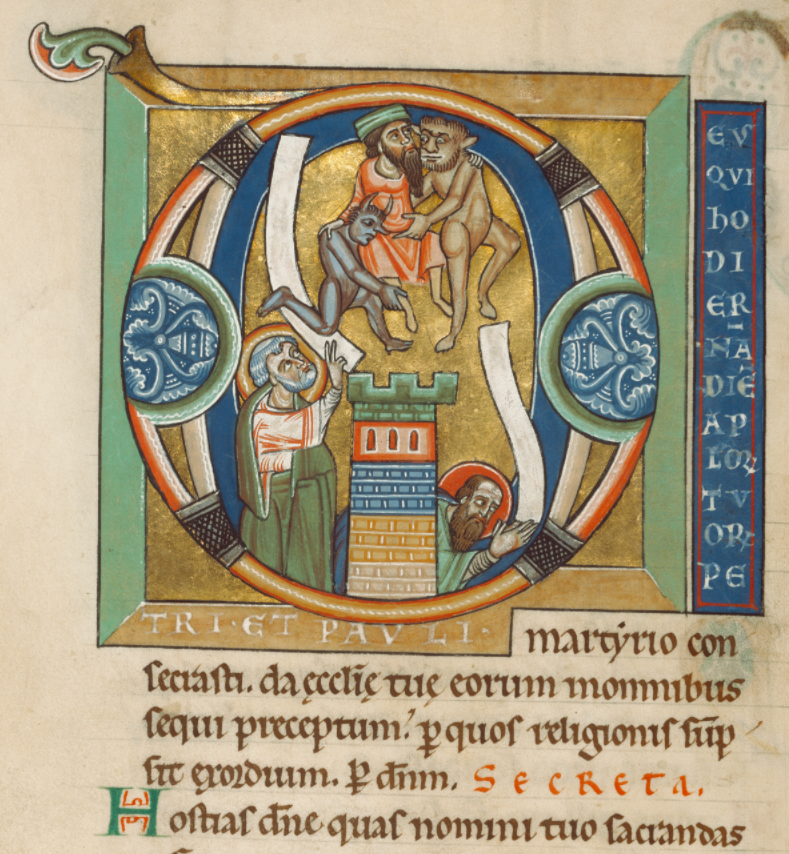 EV
QVI
hO
DI
ER
NA
DIĒ
AP
LOꝜ
TV
OꝜ
PE
TRI·ET PAVLI·
martyrio con
secrasti. da ęcclię tuę eorum in omnibus
sequi preceptum. ꝑ quos religionis sūp
sit exordium. P̄ dn̄m. SECRETA.
Hostias dn̄e quas nomini tuo sacrandas